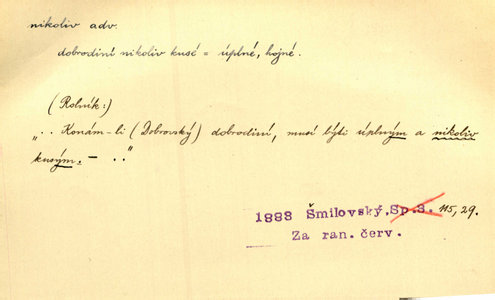 nikoliv adv.
dobrodiní nikoliv kusé = úplné, hojné.
(Rolník:)
„.. Konám-li (Dobrovský) dobrodiní, musí býti úplným a nikoliv
kusým. - .."
1888 Šmilovský. Sp.3. 115, 29.
Za ran. červ.